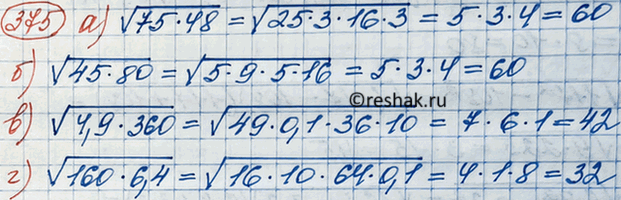 375 а) √75·48 = √25·3·16·3 = 5·3·4 = 60
б) √45·80 = √5·9·5·16 = 5·3·4 = 60
©reshak.ru
в) √4,9·360 = √49·0,1·36·10 = 7·6·1 = 42
г) √160·6,4 = √16·10·64·0,1 = 4·1·8 = 32